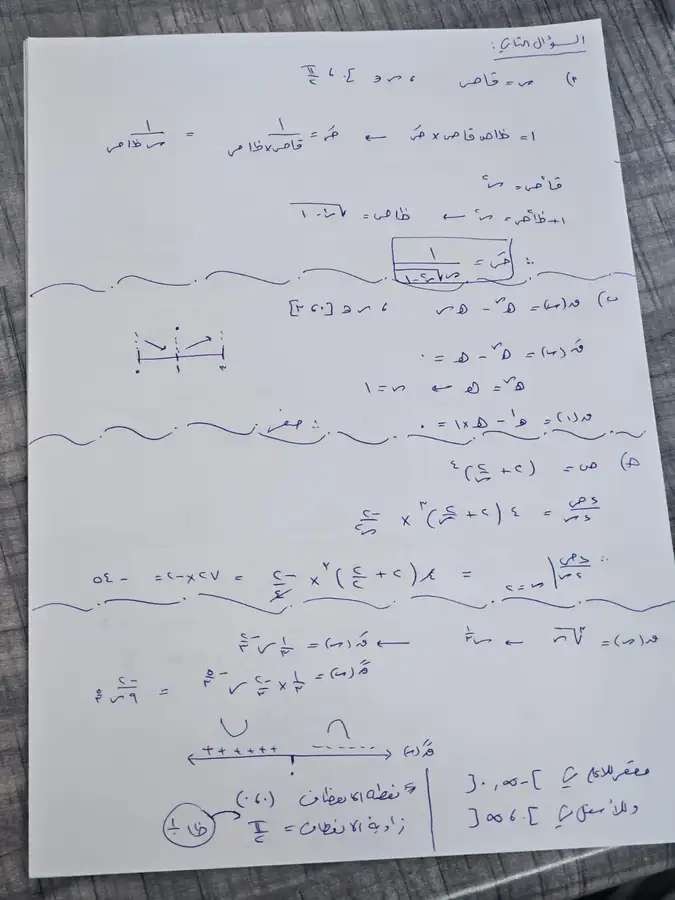 السؤال الثاني:
أ) س = قاص ، س ∈ ]٠ ، π/٢
١ = ظاص قاص × صَ ← صَ = ١/(قاص × ظاص) = ١/(س ظاص)
قا²ص = س²
١ + ظا²ص = س² ← ظاص = √(س² - ١)
∴ صَ = ١/(س√(س² - ١))
ب) ق(س) = هـ^س - هـ س ، س ∈ [٠ ، ٢]
قَ(س) = هـ^س - هـ = ٠
هـ^س = هـ ← س = ١
ق(١) = هـ^١ - هـ × ١ = ٠ ∴ صفر
هـ) ص = (٢ + ٢/س)^٤
ءص/ءس = ٤(٢ + ٢/س)^٣ × -٢/س²
∴ ءص/ءس | س = ٢ = ٤(٢ + ٢/٢)^٣ × -٢/٤ = ٢٧ × -٢ = -٥٤
ق(س) = ∛س ← س^(١/٣) ← قَ(س) = ١/٣ س^(-٢/٣)
قً(س) = ١/٣ × -٢/٣ س^(-٥/٣) = -٢/(٩ س^(٥/٣))
+ + + + + + - - - - - - قً(س)
٠
مقعر للأعلى ]-∞ ، ٠[
وللأسفل ]٠ ، ∞[
نقطة الانعطاف (٠ ، ٠)
زاوية الانعطاف = π/٢
ظا ١/٠